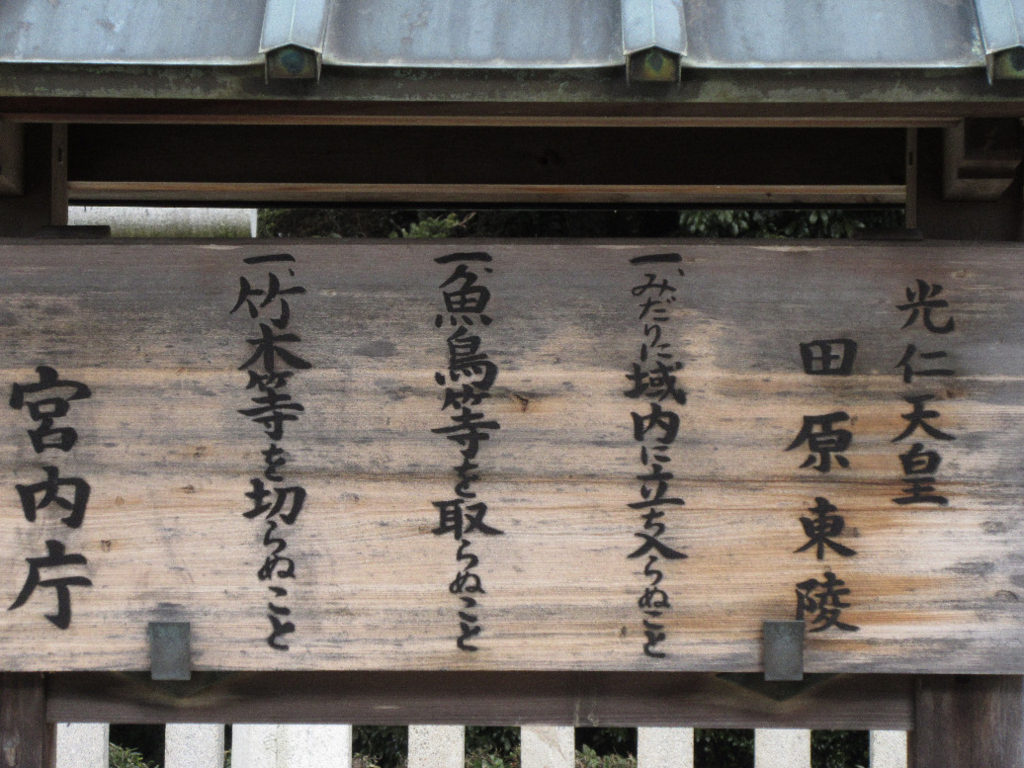 光仁天皇
田原東陵
一、みだりに域内に立ち入らぬこと
一、魚鳥等を取らぬこと
一、竹木等を切らぬこと
宮内庁